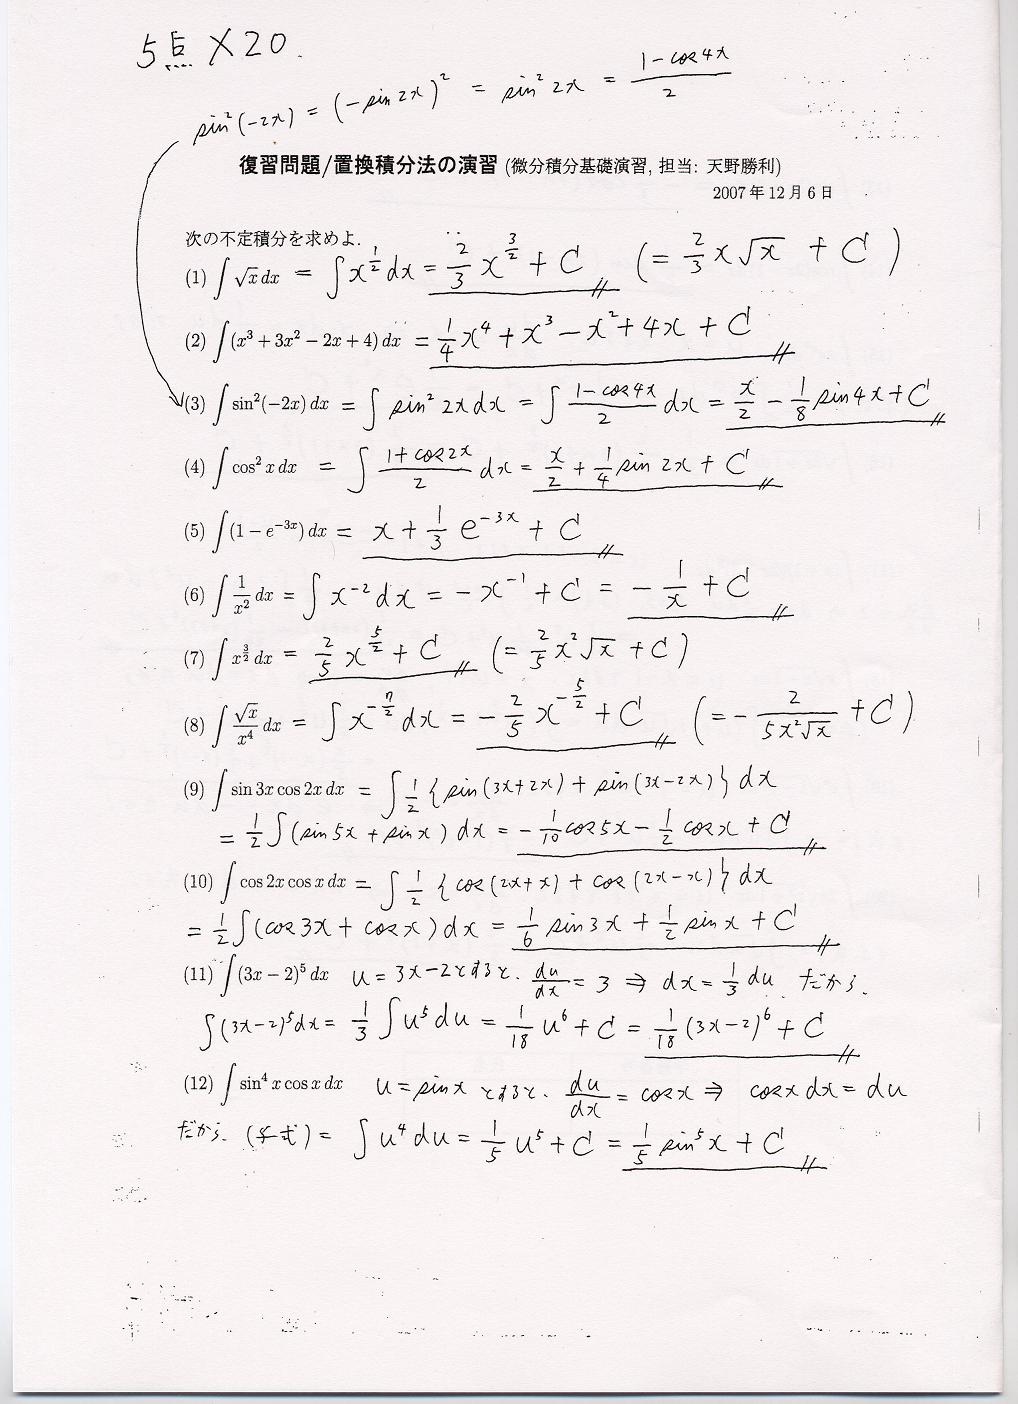 5点 × 20.
sin²(-2x) = (-sin2x)² = sin²2x = (1-cos4x)/2
復習問題/置換積分法の演習 (微分積分基礎演習, 担当: 天野勝利)
2007年12月6日
次の不定積分を求めよ.
(1) ∫√x dx = ∫x^{1/2}dx = 2/3 x^{3/2} + C (= 2/3 x√x + C)
(2) ∫(x³ + 3x² − 2x + 4) dx = 1/4 x⁴ + x³ − x² + 4x + C
(3) ∫sin²(−2x) dx = ∫sin²2x dx = ∫(1-cos4x)/2 dx = x/2 − 1/8 sin4x + C
(4) ∫cos² x dx = ∫(1+cos2x)/2 dx = x/2 + 1/4 sin2x + C
(5) ∫(1 − e^{−3x}) dx = x + 1/3 e^{−3x} + C
(6) ∫1/x² dx = ∫x^{−2}dx = −x^{−1} + C = −1/x + C
(7) ∫x^{3/2} dx = 2/5 x^{5/2} + C (= 2/5 x²√x + C)
(8) ∫√x/x⁴ dx = ∫x^{−7/2}dx = −2/5 x^{−5/2} + C (= −2/(5x²√x) + C)
(9) ∫sin 3x cos 2x dx = ∫1/2 {sin(3x+2x) + sin(3x−2x)} dx
= 1/2 ∫(sin5x + sinx) dx = −1/10 cos5x − 1/2 cosx + C
(10) ∫cos 2x cos x dx = ∫1/2 {cos(2x+x) + cos(2x−x)} dx
= 1/2 ∫(cos3x + cosx) dx = 1/6 sin3x + 1/2 sinx + C
(11) ∫(3x − 2)⁵ dx u = 3x−2とすると、du/dx = 3 ⇒ dx = 1/3 du だから、
∫(3x−2)⁵dx = 1/3 ∫u⁵du = 1/18 u⁶ + C = 1/18 (3x−2)⁶ + C
(12) ∫sin⁴ x cos x dx u = sinx とすると、du/dx = cosx ⇒ cosx dx = du
だから、(与式) = ∫u⁴du = 1/5 u⁵ + C = 1/5 sin⁵x + C